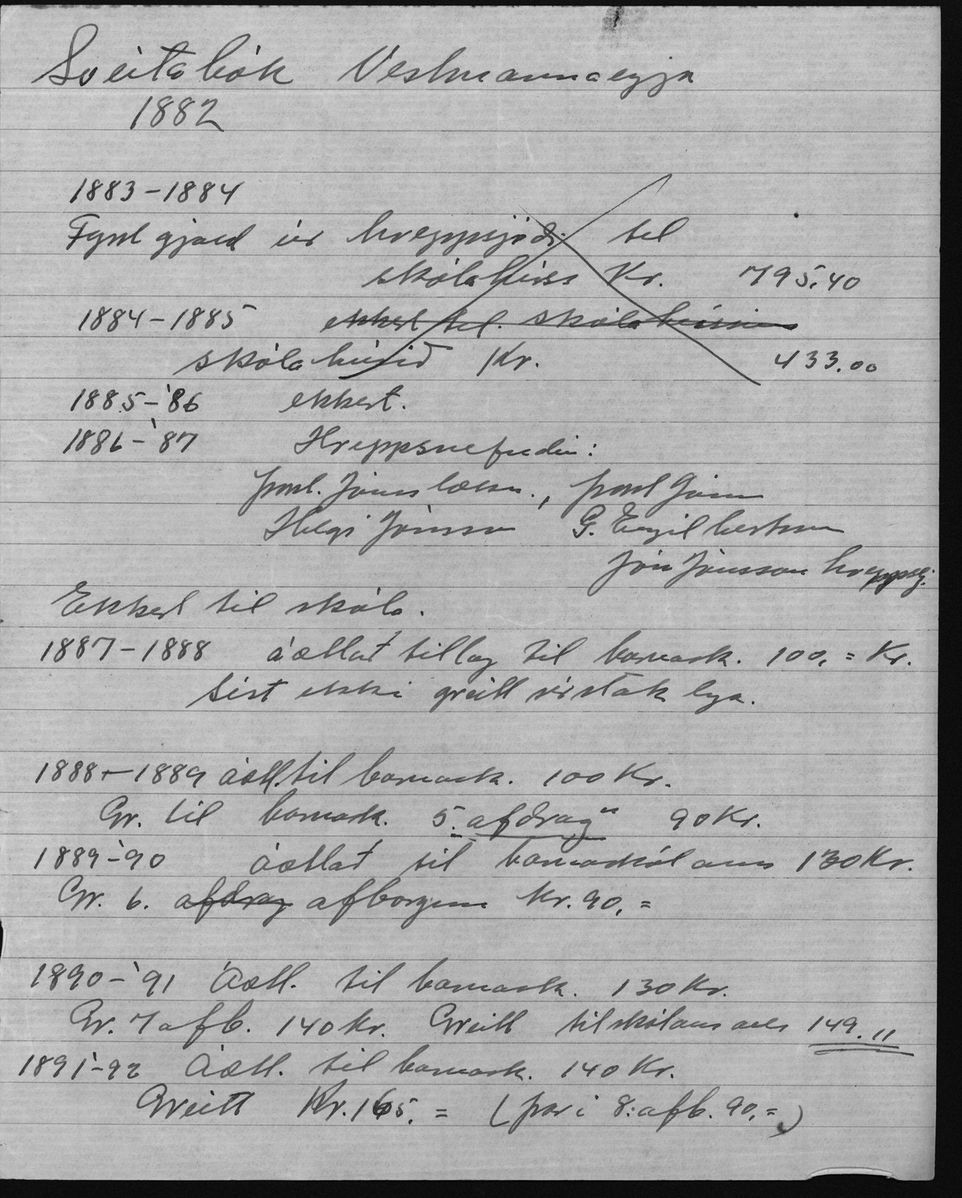 Sveitabók Vestmannaeyja
1882
1883-1884
Fyrst gjald úr hreppsjóði til
skólahúss Kr. 795.40
1884-1885 ekkert til skólahússins
skólahúsið Kr. 433.00
1885-'86 ekkert.
1886-'87 Hreppsnefndin:
Þorst. Jónss læknir, Þorst Jónss
Helgi Jónsson G. Engilbertsson
Jón Jónsson hreppstj.
Ekkert til skóla.
1887-1888 áætlat tillag til barnask. 100,= Kr.
Sést ekki greitt sérstaklega.
1888-1889 áætl. til barnask. 100 Kr.
Gr. til barnask. 5. afdrag" 90 Kr.
1889-'90 áætlat til barnaskólans 130 Kr.
Gr. 6. afdrag afborgun Kr. 90,=
1890-'91 Áætl. til barnask. 130 Kr.
Gr. 7 afb. 140 kr. Greitt til skólans alls 149.11
1891-92 Áætl. til barnask. 140 Kr.
Greitt Kr. 165,= (þar í 8: afb. 90,=)